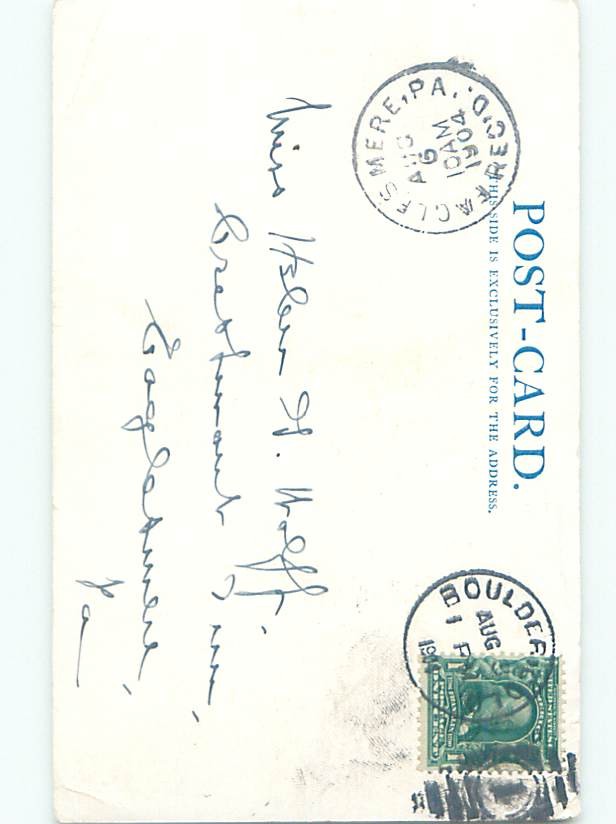 POST-CARD.
THIS SIDE IS EXCLUSIVELY FOR THE ADDRESS.
EAGLES MERE, PA. REC'D.
AUG
6
10AM
1904
BOULDER
AUG
1 P
Miss Helen H. Wolff,
Crestmont Inn,
Eaglesmere,
Pa